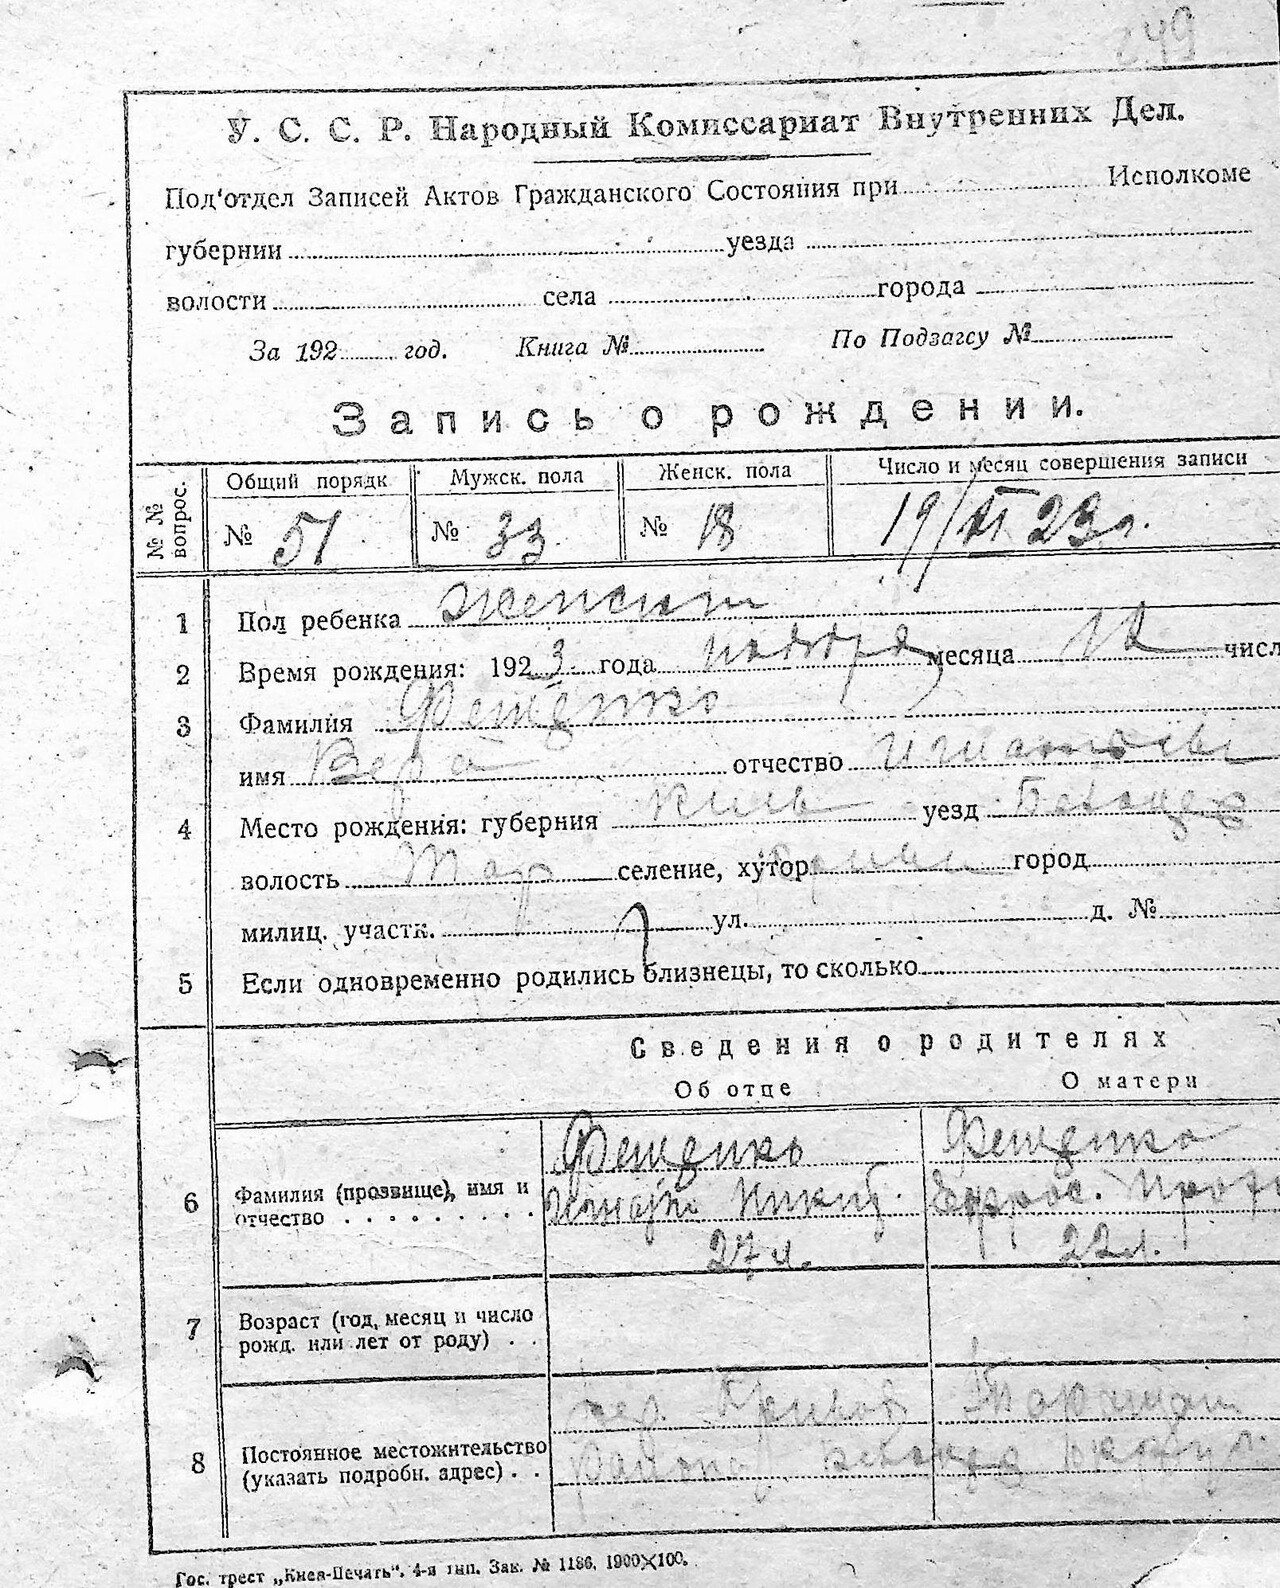 49
У. С. С. Р. Народный Комиссариат Внутренних Дел.
Под'отдел Записей Актов Гражданского Состояния при Исполкоме
губернии уезда
волости села города
За 192 год. Книга № По Подзагсу №
Запись о рождении.
№ № вопрос. Общий порядк Мужск. пола Женск. пола Число и месяц совершения записи
№ 51 № 33 № 18 19/XI 23г.
1 Пол ребенка Женский
2 Время рождения: 1923 года ноября месяца числ
3 Фамилия Фещенко
имя Вера отчество
4 Место рождения: губерния Киев уезд Белоцер
волость Тар селение, хутор город
милиц. участк. ул. д. №
5 Если одновременно родились близнецы, то сколько
Сведения о родителях
Об отце О матери
6 Фамилия (прозвище), имя и отчество Фещенко Никит. 27 л. Фещенко Ефрос. 22 л.
7 Возраст (год, месяц и число рожд. или лет от роду)
8 Постоянное местожительство (указать подробн. адрес) района
Гос. трест „Киев-Печать“. 4-я тип. Зак. № 1186. 1900×100.